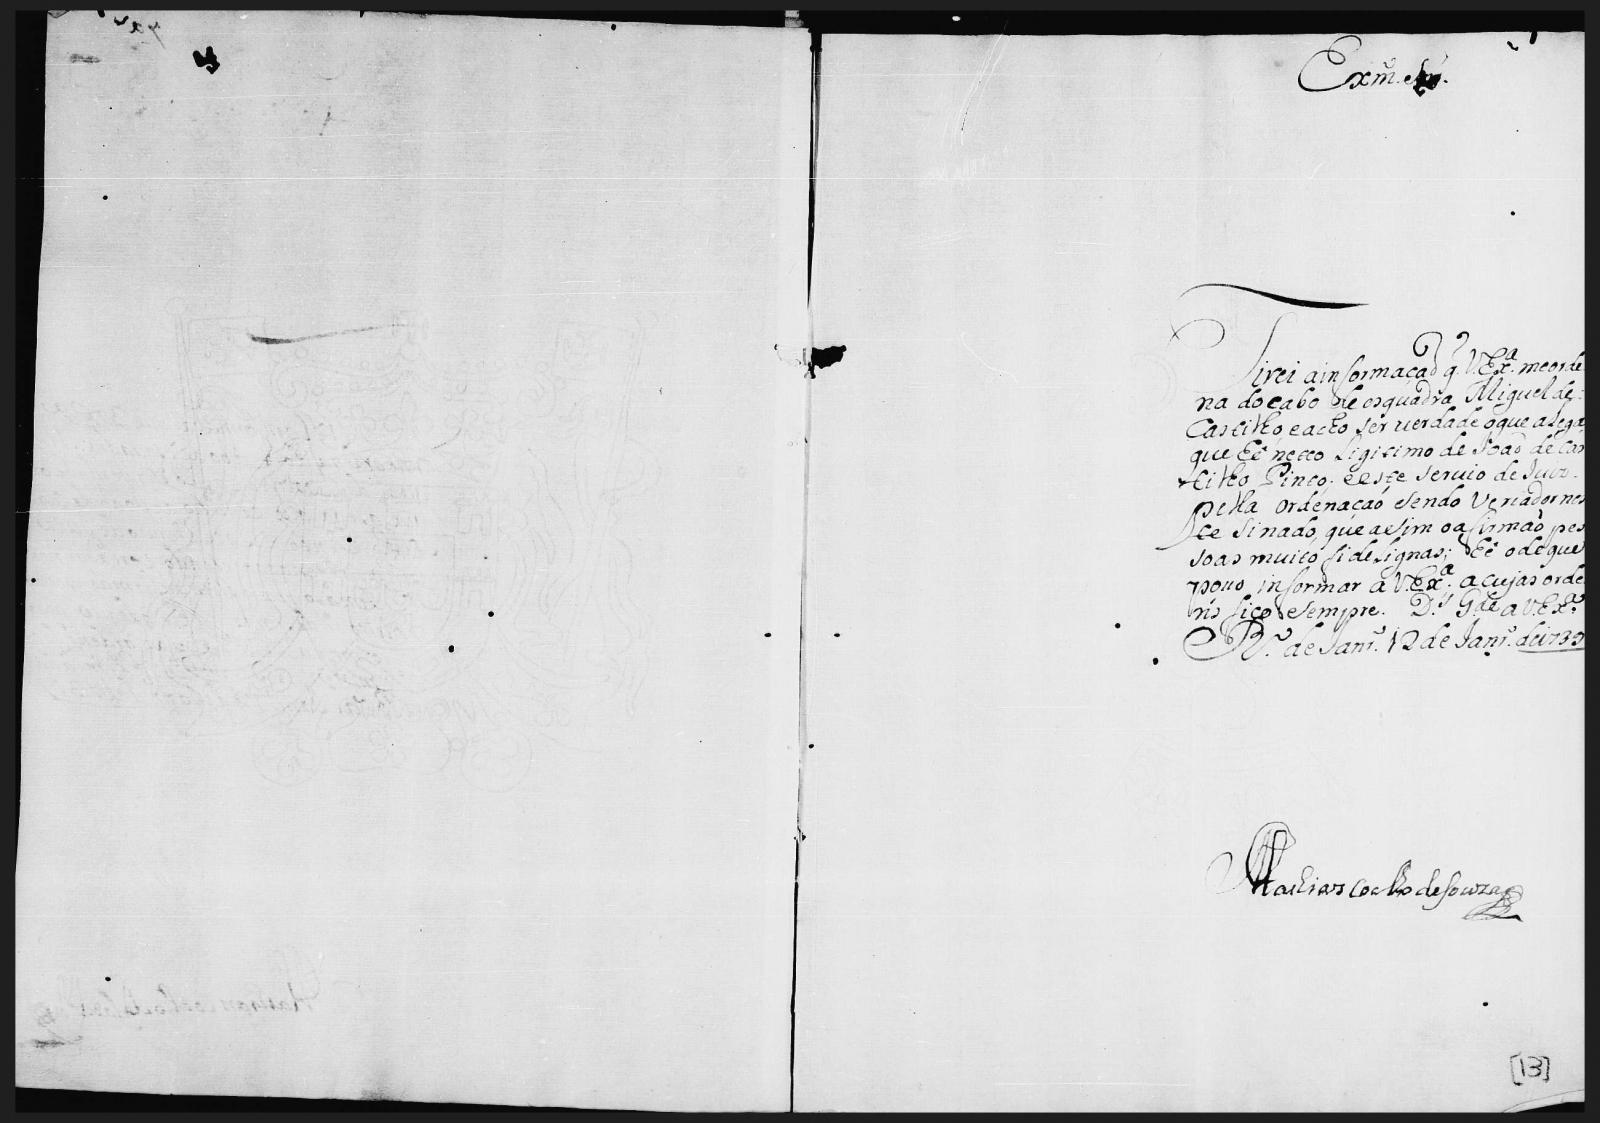 Exm.º Sñr.
Tirei a informaçaõ q̃ V.Exª. me orde
na do cabo de esquadra Miguel de
Castilho e acho ser verdade o que alega
que hé netto Ligitimo de Joaõ de Cas
tilho Pinto, e este servio de Juiz
pella ordenaçaõ sendo Veriador nes
te Sinado, que assim o afirmaõ pes
soas muito fidelignas; hé o de que
posso informar a V.Exª. a cujas orde
ns fico sempre. D.s G.de a V.Exª.
R.º de Janr.º 12 de Janr.º de 173
Mathias Coelho de Souza
[13]